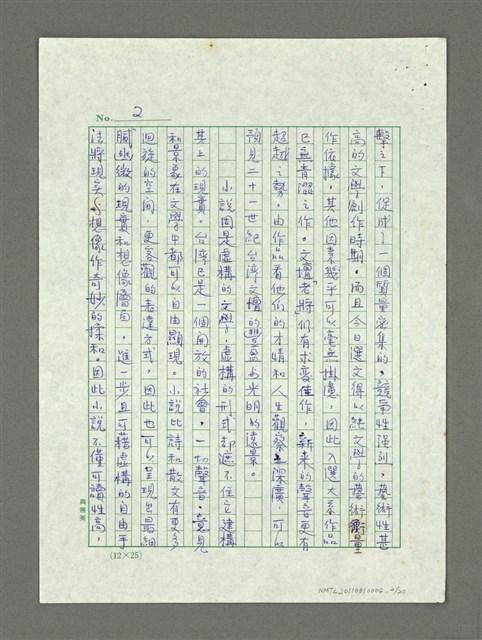 No. 2
擊之下，促成了一個質量密集的，競爭性強烈，藝術性甚
高的文學創作時期。而且今日選文得以純文學的藝術衡量
作依據，其他因素幾乎可以毫無掛慮，因此入選大系作品
已無青澀之作。文壇老將們有求變佳作，新來的聲音更有
超越之勢。由作品看他們的才情和人生觀察之深廣，可以
預見二十一世紀台灣文壇的豐盈與光明的遠景。
小說固是虛構的文學，虛構的形式却遮不住它建構
其上的現實。台灣已是一個開放的社會，一切聲音、意見
和景象在文學中都可以自由顯現。小說比詩和散文有更多
迴旋的空間，更客觀的表達方式，因此也可以呈現出最細
膩幽微的現實和想像層面，進一步且可藉虛構的自由手
法將現實與想像作奇妙的揉和。因此小說不僅可讀性高，
(12×25)
NMTL20110810006-2/20